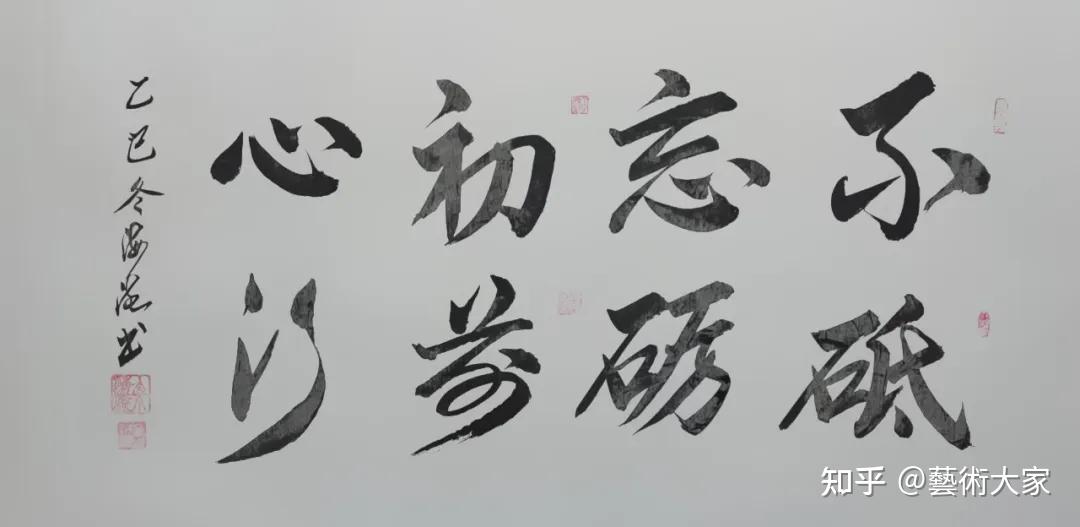 不忘初心
砥砺前行
乙巳冬海书
知乎 @藝術大家